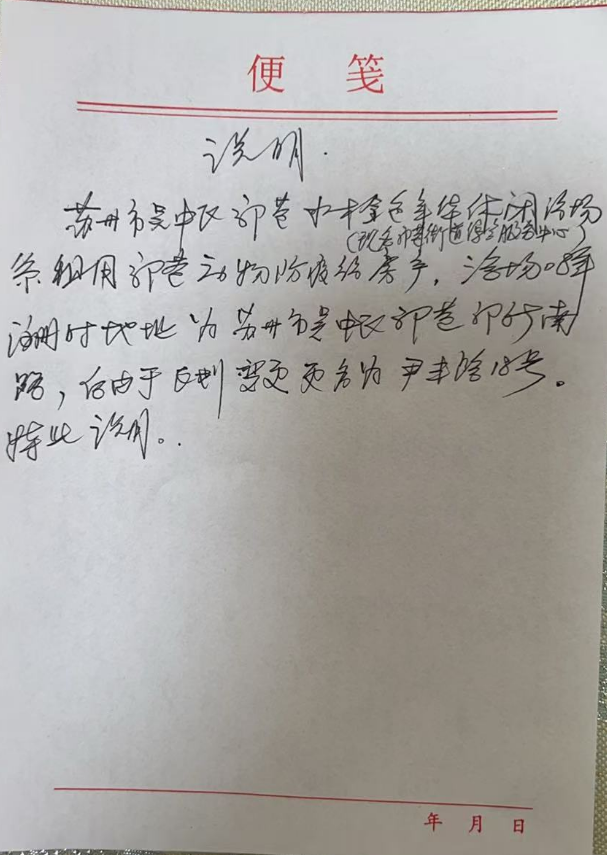 便 笺
说明.
苏州市吴中区郭巷水中金色年华休闲浴场
(现名郭巷街道综合服务中心
系租用郭巷动物防疫站房产,浴场08年
注册时地址为苏州市吴中区郭巷郭新南
路,后由于区划变更更名为尹丰路18号。
特此说明。
年 月 日